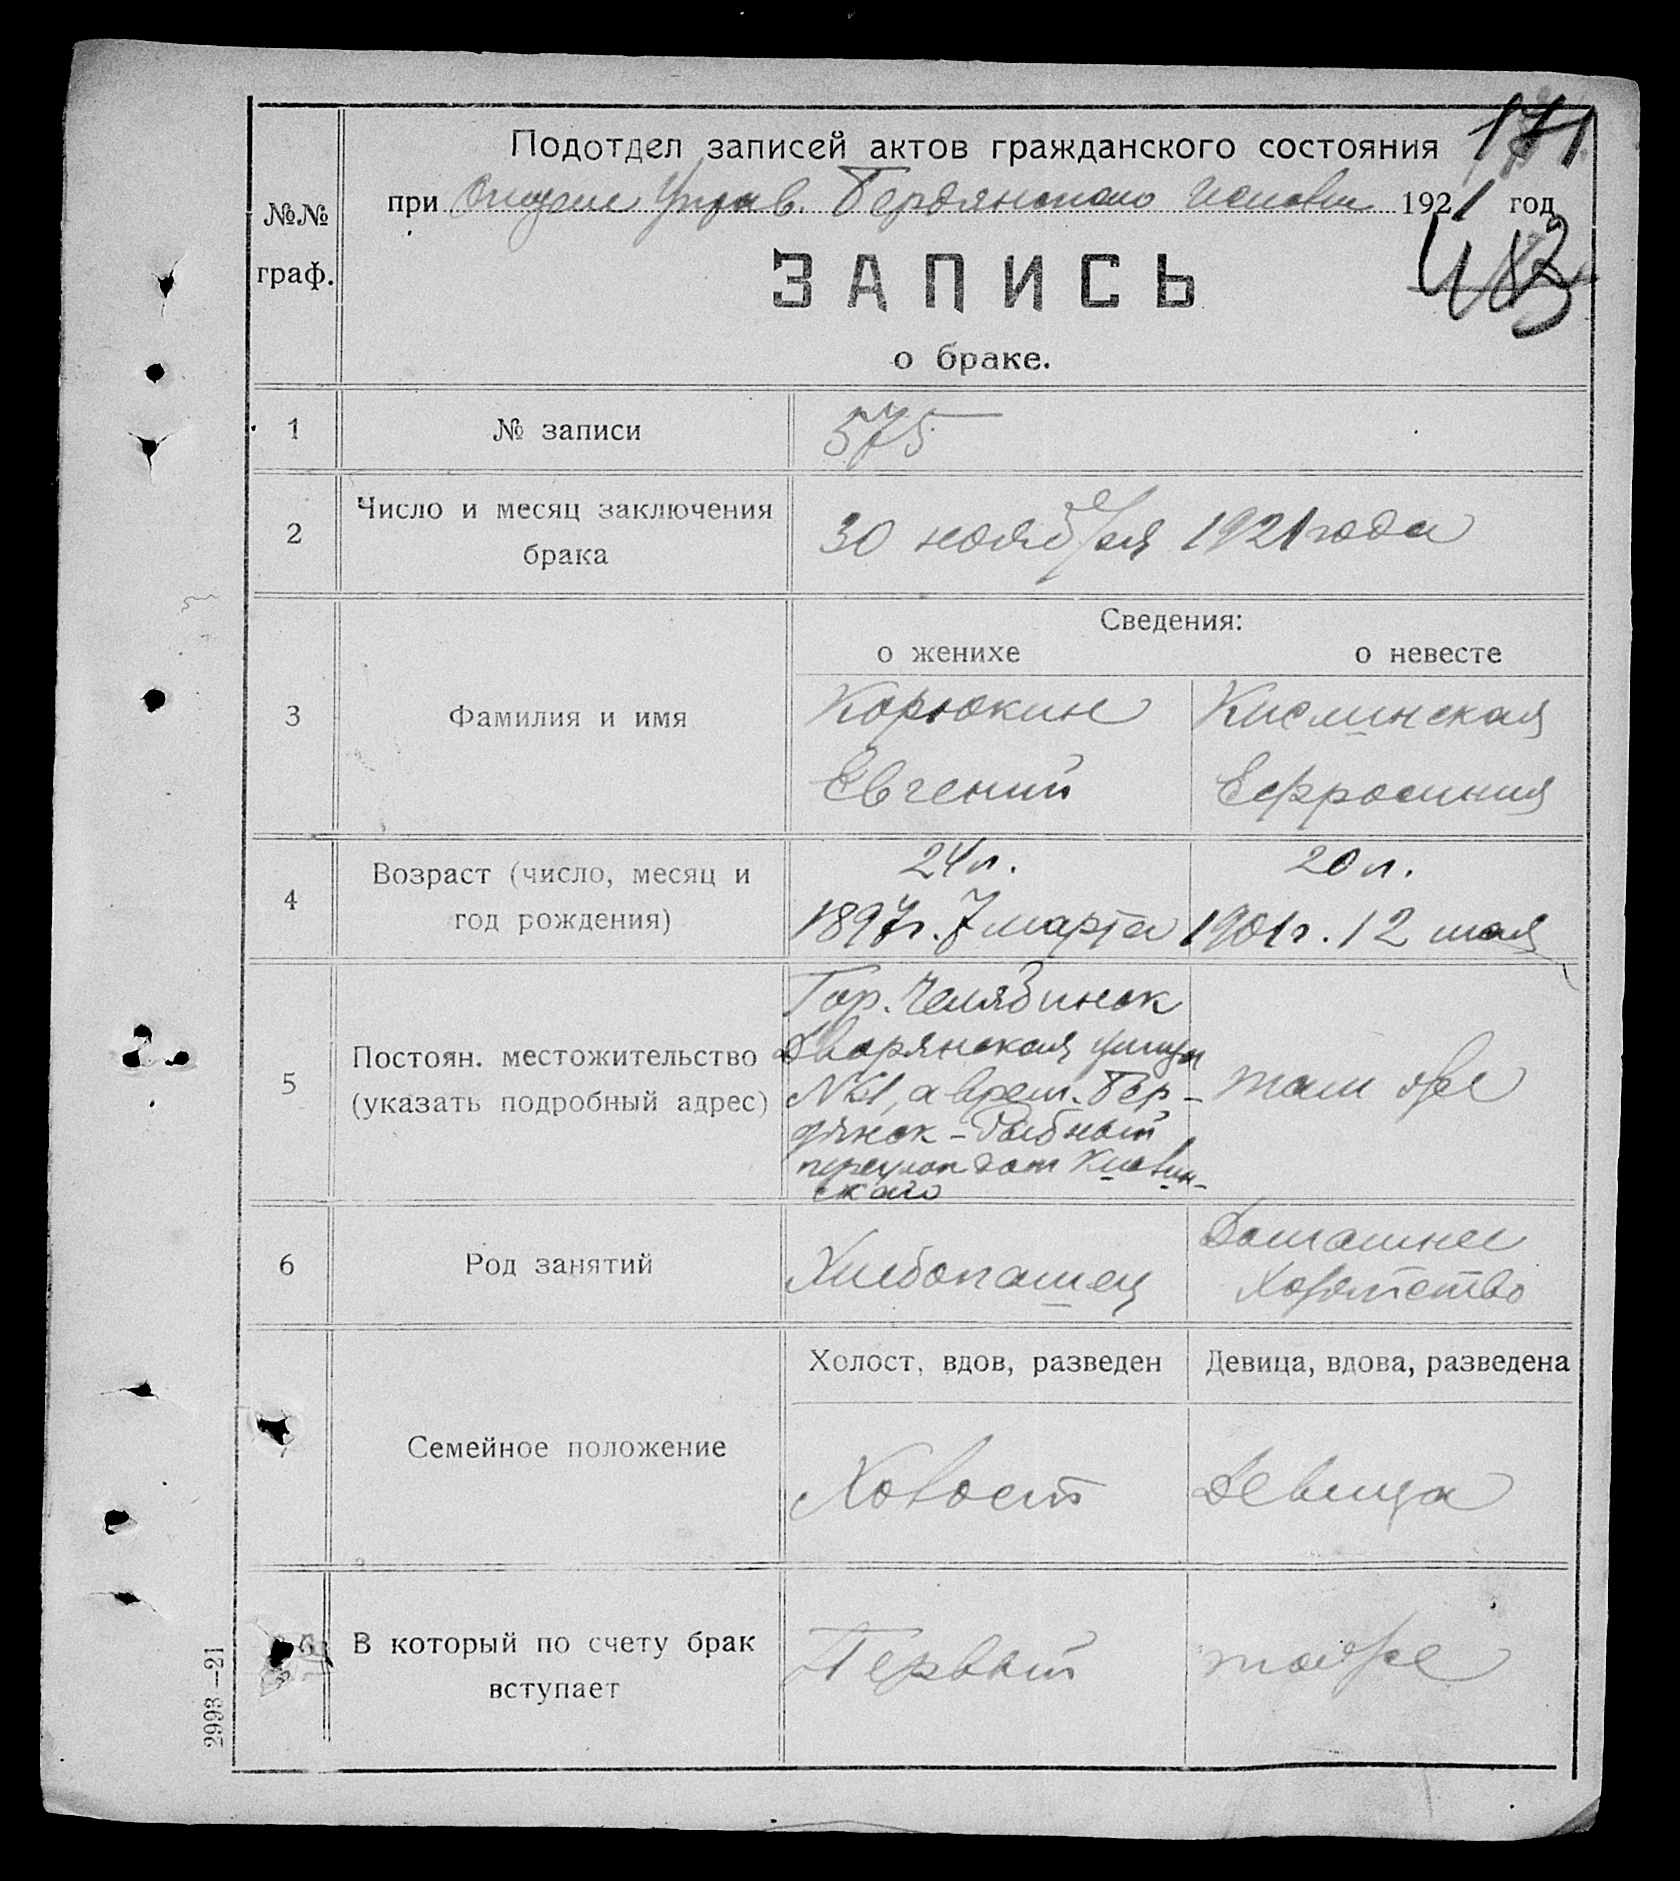 171
Подотдел записей актов гражданского состояния
при Отделе Управ. Бердянского Исполк 1921 год
№№
граф.
ЗАПИСЬ
о браке.
1 № записи 575
2 Число и месяц заключения
брака
30 ноября 1921 года
Сведения:
о женихе о невесте
3 Фамилия и имя
Корюкин Кислинская
Евгений Ефросиния
4 Возраст (число, месяц и
год рождения)
24 л. 20 л.
1897 г. 7 марта 1901 г. 12 мая
5 Постоян. местожительство
(указать подробный адрес)
Гор. Челябинск
Дворянская улица
№ 61, а врем. Бер-
дянск - Рыбный
переулок дом
ского
там же
6 Род занятий
Хлебопашец
Домашнее
Хозяйство
Холост, вдов, разведен Девица, вдова, разведена
7 Семейное положение
Холост Девица
В который по счету брак
вступает
Первый тоже
2993—21